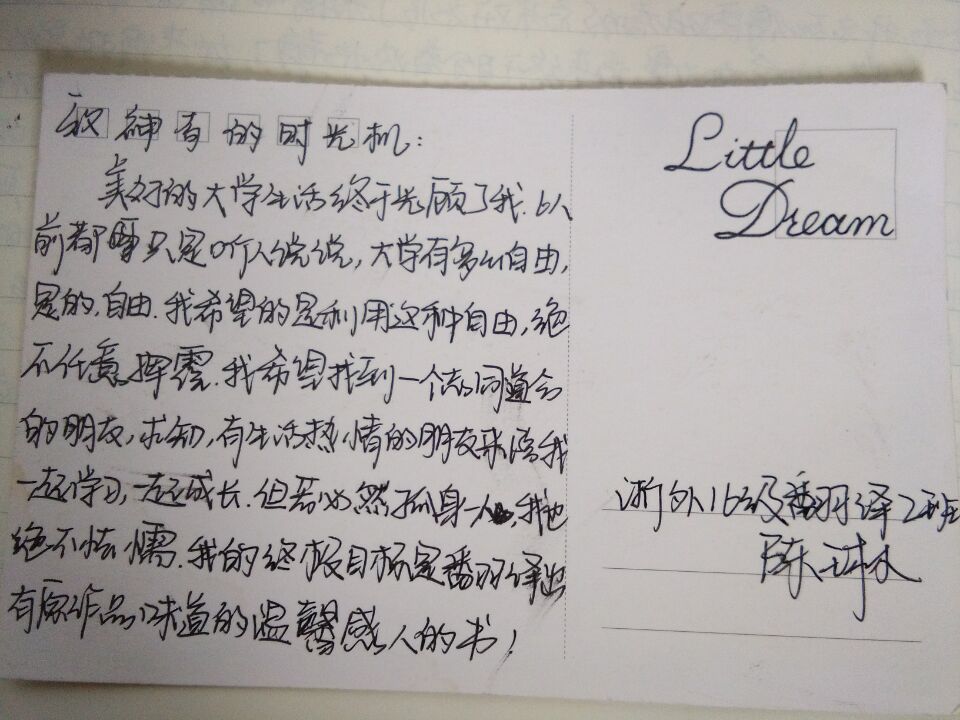 致神奇的时光机:
美好的大学生活终于光顾了我.以
前都只是听人说说,大学有多么自由,
是的,自由.我希望的是利用这种自由,绝
不任意挥霍.我希望找到一个志同道合
的朋友,求知,有生活热情的朋友来陪我
一起学习,一起成长.但若必然孤身一人,我也
绝不怯懦.我的终极目标是翻译出
有原作品味道的温馨感人的书!
Little
Dream
浙外16级翻译2班
陈琳